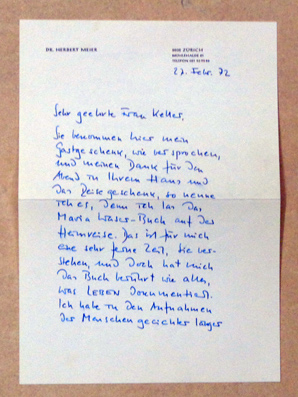 DR. HERBERT MEIER
ZÜRICH
27. Febr. 72
Sehr geehrte Frau Keller,
Sie bekommen hier mein
Gastgeschenk, wie versprochen,
und meinen Dank für den
Abend in Ihrem Haus und
das Reisegeschenk, so nenne
ich es, denn ich las das
Maria Waser-Buch auf der
Heimreise. Das ist für mich
eine sehr ferne Zeit, Sie ver-
stehen, und doch hat mich
das Buch berührt wie alles,
was LEBEN dokumentiert.
Ich habe in den Aufnahmen
der Menschen gesichter länger